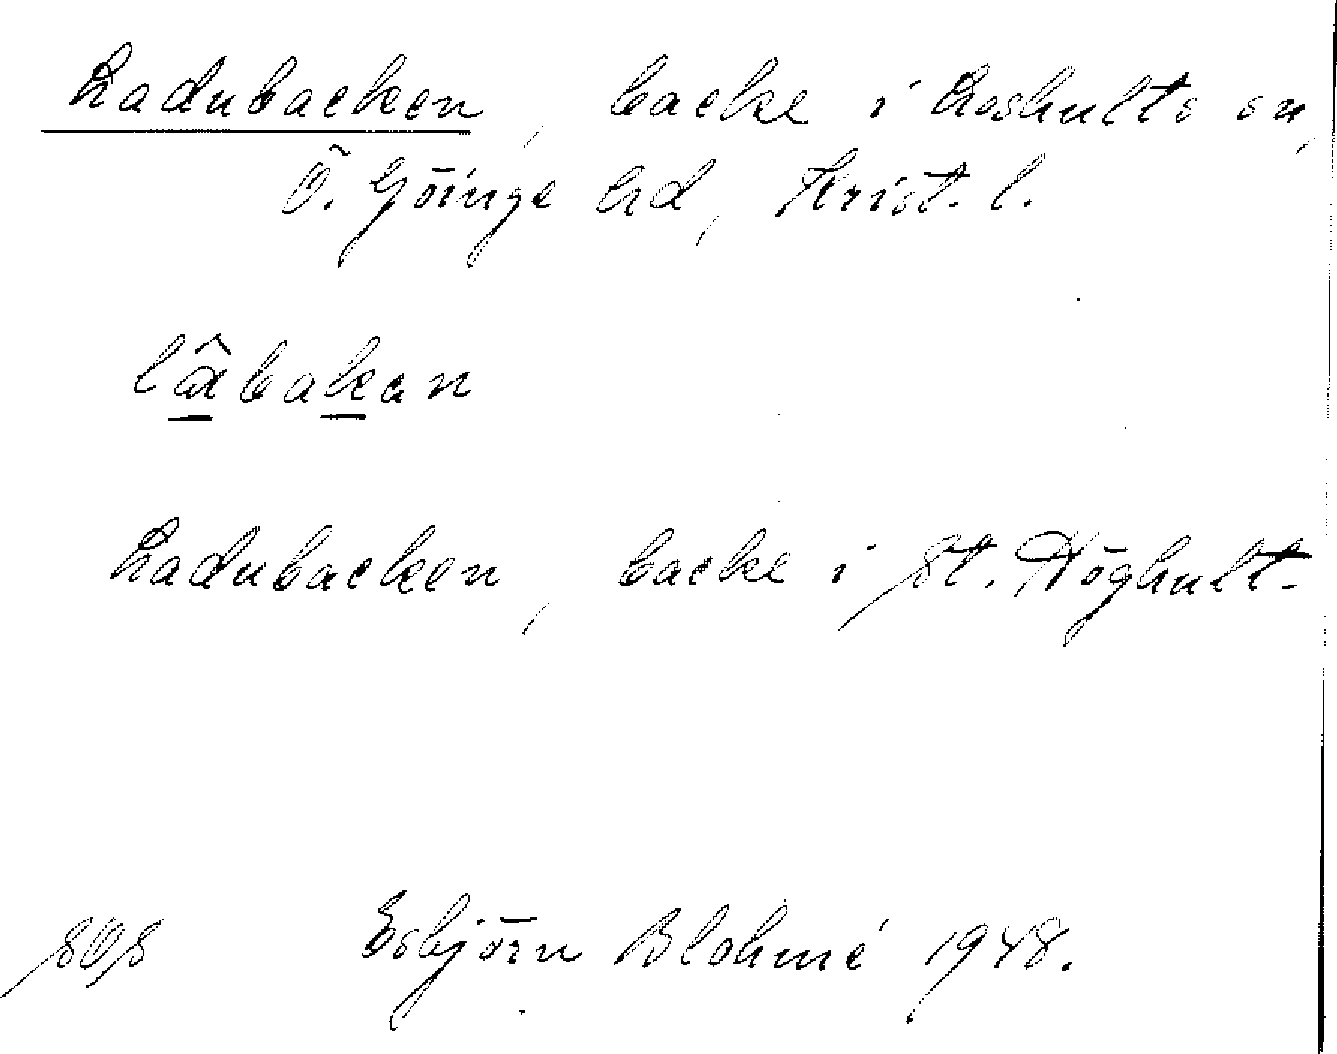 Ladubacken, backe i Loshults sn,
Ö. Göinge hd, Krist. l.
lâbakan
Ladubacken, backe i St. Höghult.
SOS Esbjörn Blohmé 1948.